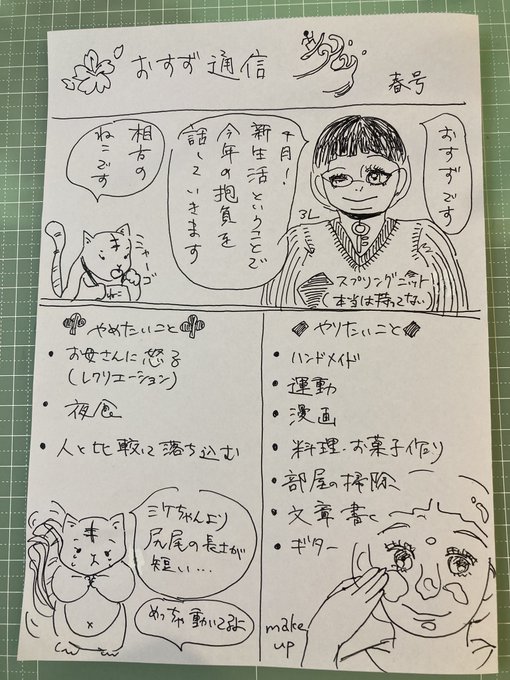 おすず通信
春号
おすずです
4月!
新生活ということで
今年の抱負を
話していきます
相方の
ねこです
ニャーゴ
ねこ
3L
スプリングニット
(本当は持ってない
やめたいこと
・お母さんに怒る
(レクリエーション)
・夜食
・人と比較して落ち込む
ミケちゃんより
尻尾の長さが
短い…
めっちゃ動いてるに
やりたいこと
・ハンドメイド
・運動
・漫画
・料理・お菓子作り
・部屋の掃除
・文章書く
・ギター
make
up